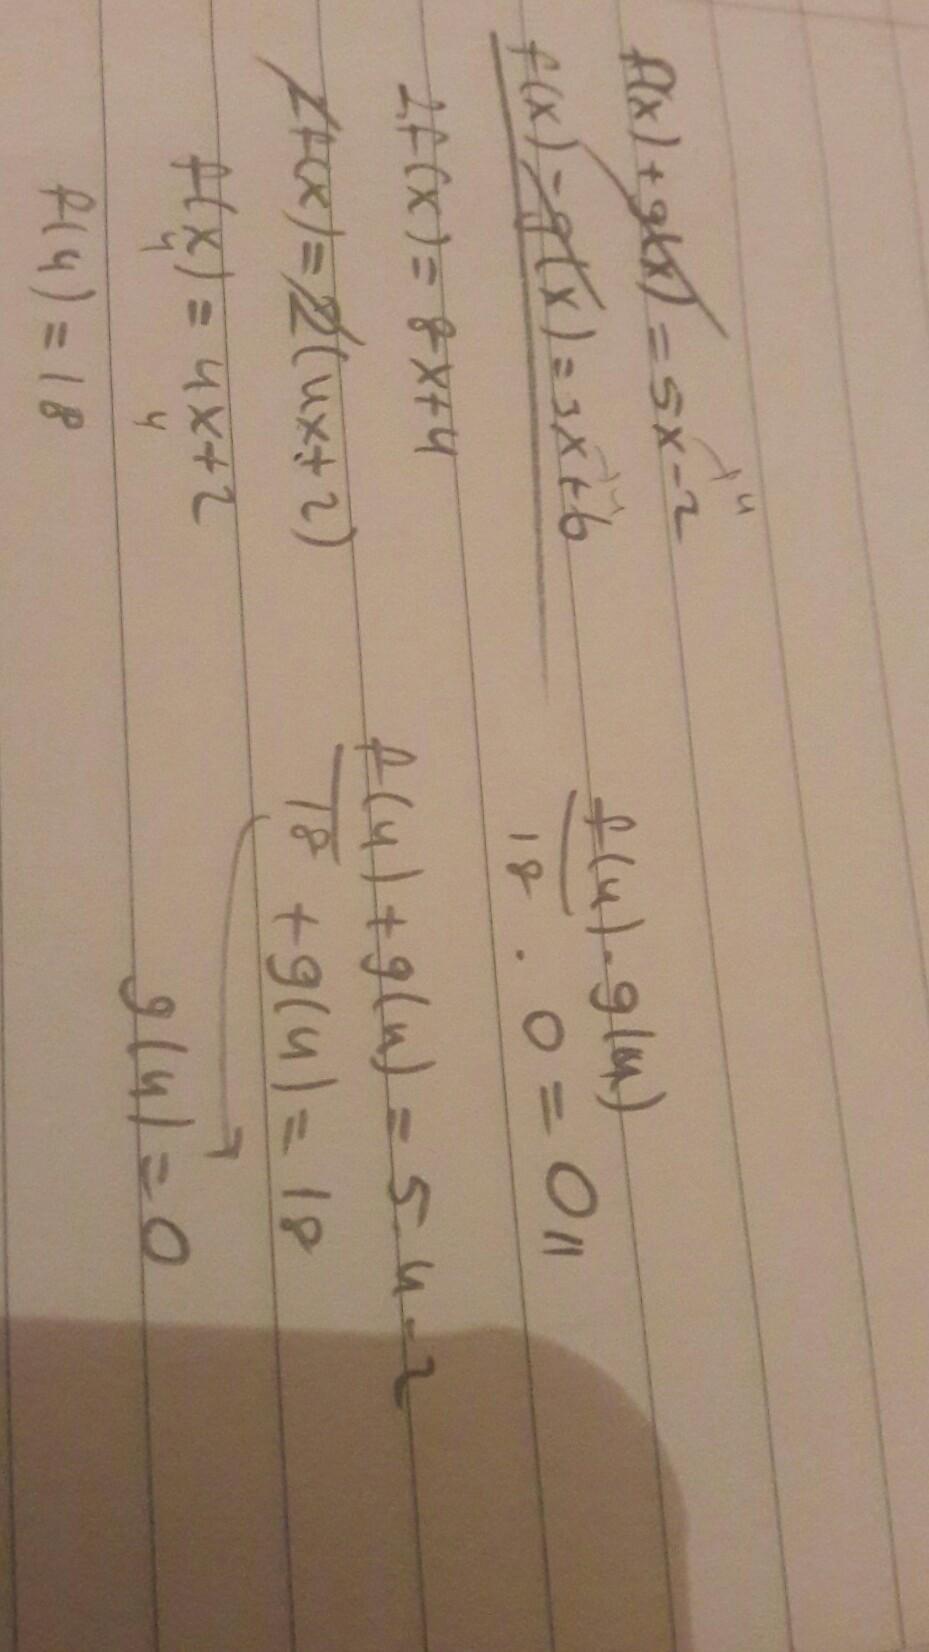 f(x) + g(x) = 5x - 2
4
f(x) - g(x) = 3x + 6
4
2f(x) = 8x + 4
2f(x) = 2(4x + 2)
f(x) = 4x + 2
4 4
f(4) = 18
f(4) . g(4)
18 . 0 = 0 //
f(4) + g(4) = 5.4 - 2
18 + g(4) = 18
g(4) = 0